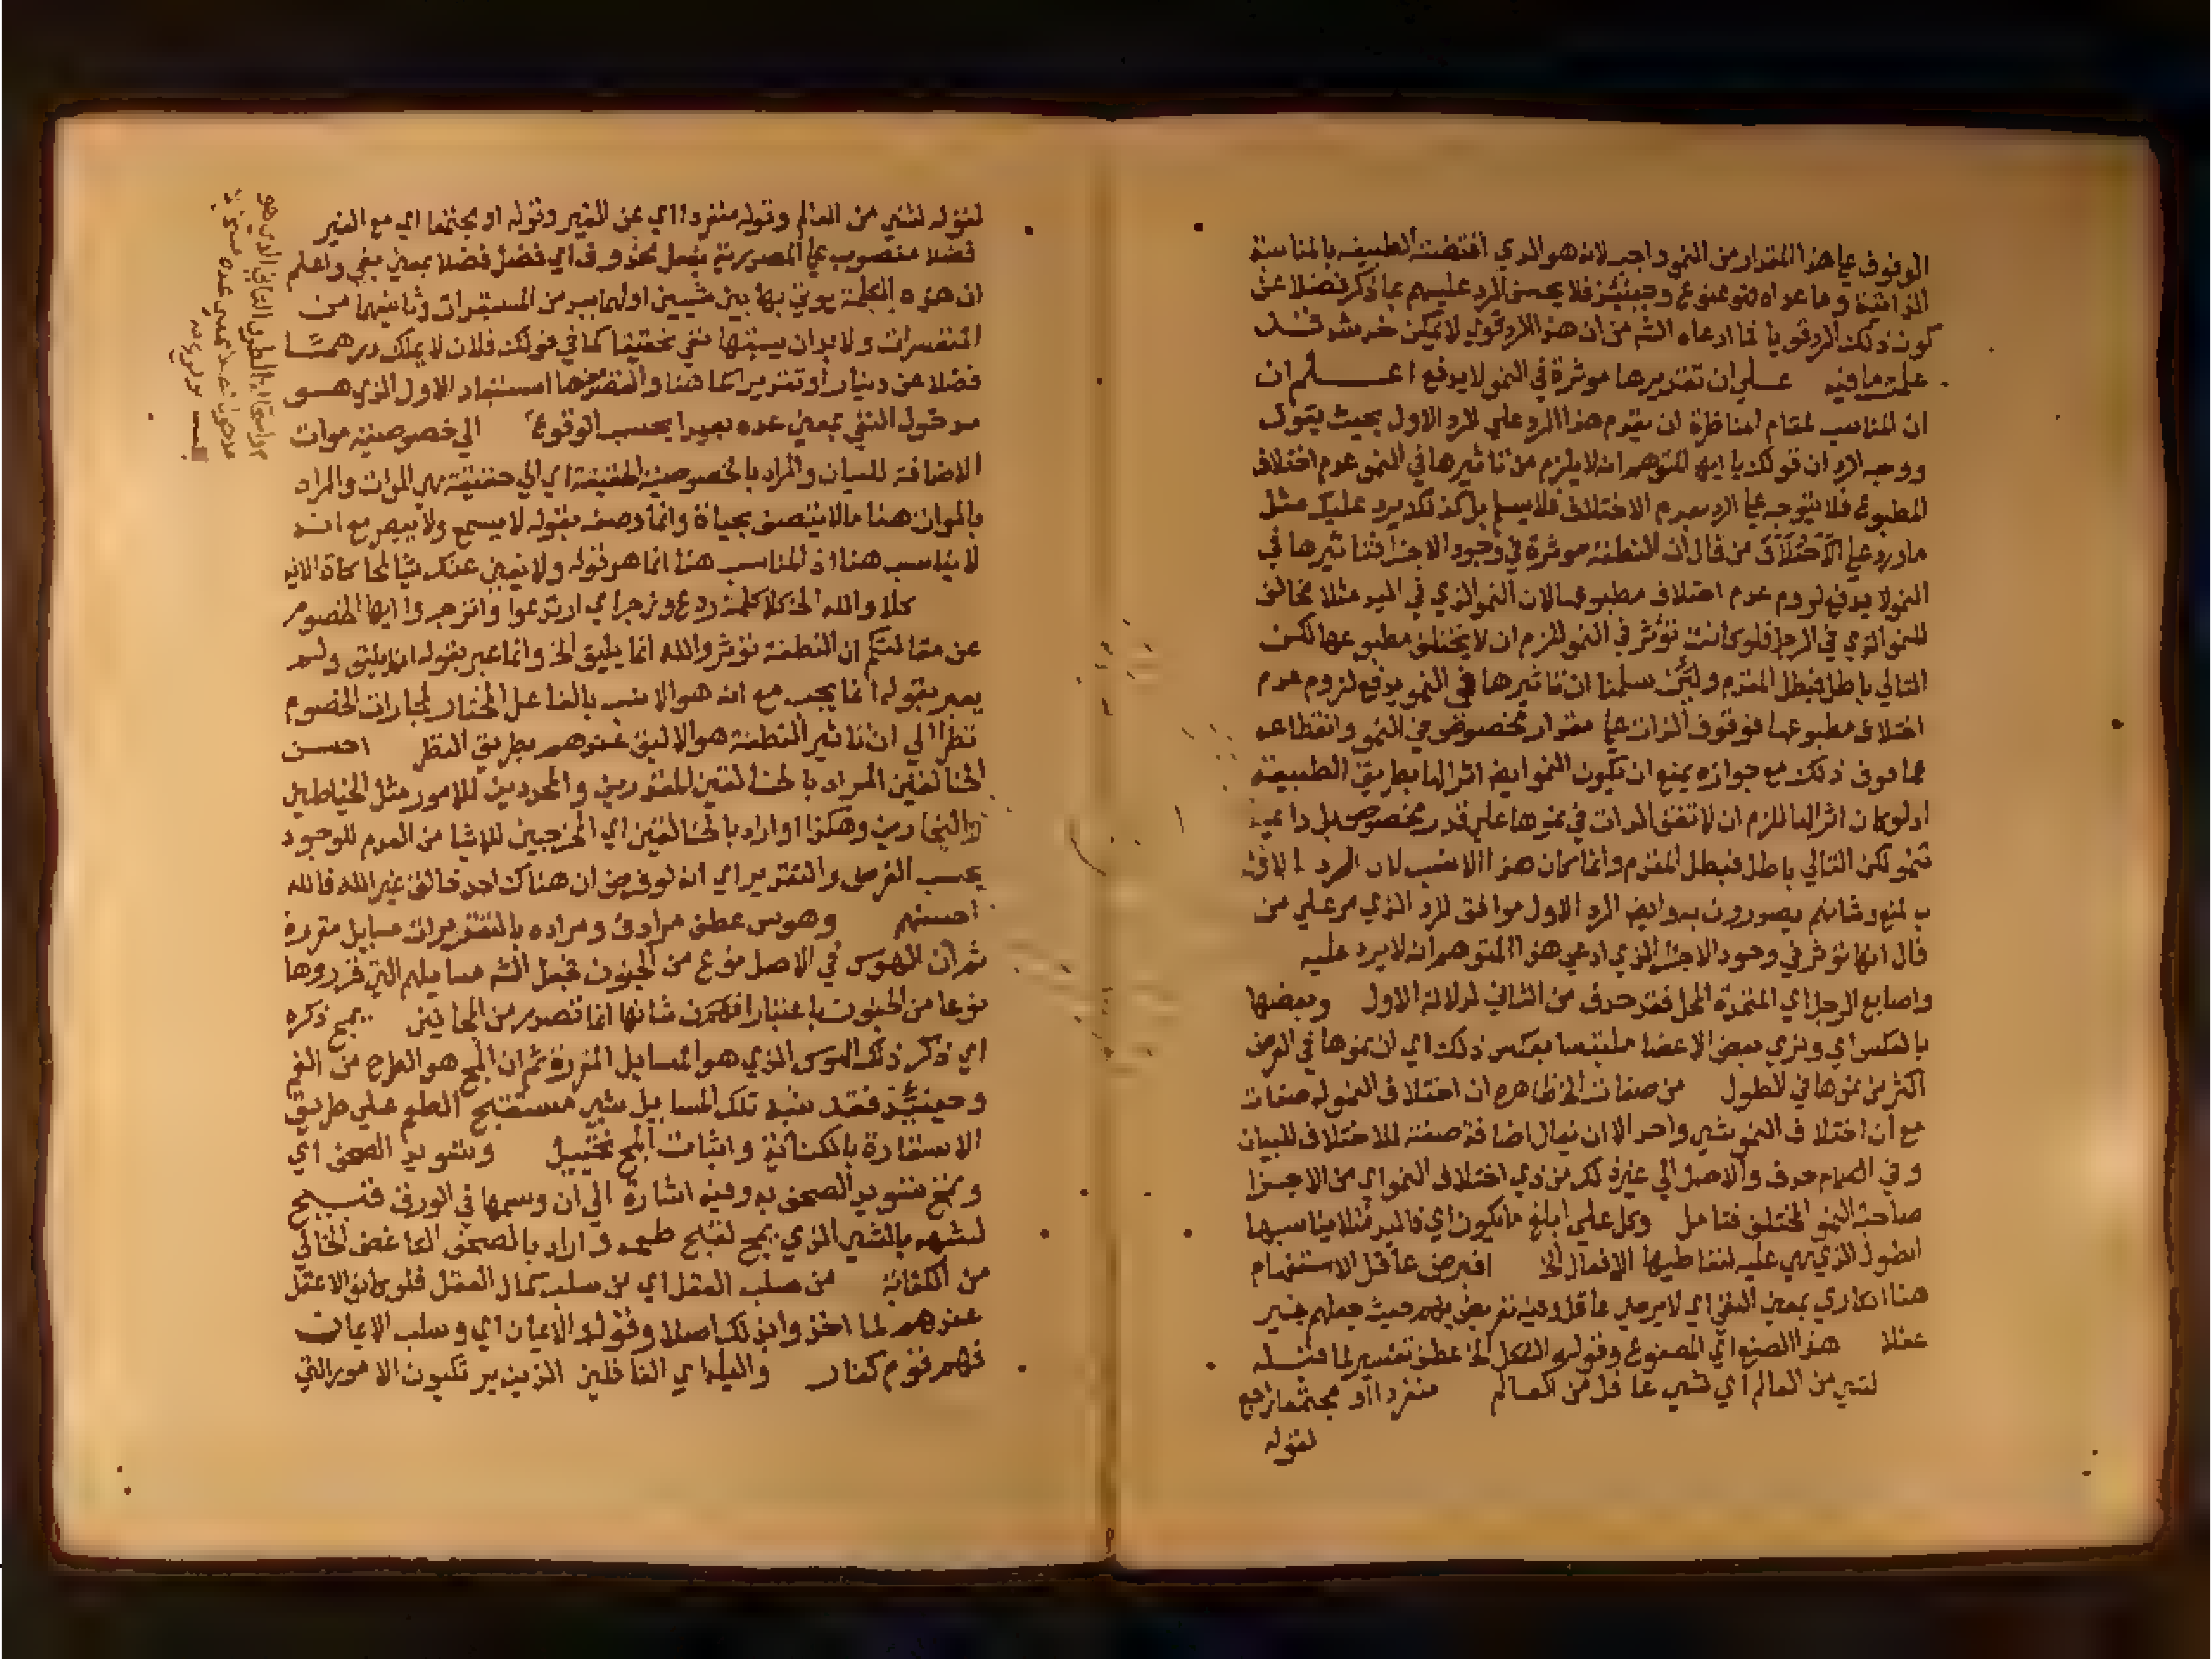 الوقوف علي هذا المقدار من النمو واجب لانه هو الذي اقتضته الطبيعة بالمناسبة
الذاتية وما عداه ممنوع وحينئذ فلا يحسن الرد عليهم بما ذكر فضلا عن
كون ذلك الرد قويا فما ادعاه الشه من ان هذا الرد قوي لا يمكن خدشه قد
علمت ما فيه علي ان تقديرها موثرة في النمو لا يدفع اعلم ان
ان المناسب لمقام المناظرة ان يقدم هذا الرد علي الرد الاول بحيث يقول
ووجه الرد ان قولك يا ايها المتوهم انه لا يلزم من تاثيرها في النمو عدم اختلاف
المطبوع فلا يتوجه علي الرد بعدم الاختلاف فلا يسلم بل كذلك يرد عليك مثل
ما ورد علي الاختلاف من قال ان النطفة موثرة في وجود الاجزا فتاثيرها في
النمو لا يدفع لزوم عدم اختلاف مطبوعها لان النمو الذي في اليد مثلا مخالف
للنمو الذي في الرجل فلو كانت تؤثر في النمو للزم ان لا يختلف مطبوعها لكن
التالي باطل فبطل المقدم ولئن سلمنا ان تاثيرها في النمو يدفع لزوم عدم
اختلاف مطبوعها فوقوف الذات علي مقدار مخصوص في النمو وانقطاعه
عما فوق ذلك مع جوازه يمنع ان يكون النمو ايضا اثرا لها بطريق الطبيعة
اذ لو كان اثرا لها للزم ان لا تقف الذات في نموها علي قدر مخصوص بل دائما
تنمو لكن التالي باطل فبطل المقدم وانما كان هذا الانسب لان الرد
بالمنع وشانهم يصدرون به وايضا الرد الاول موافق للرد الذي مر علي من
قال انها توثر في وجود الاجزا الذي ادعي هذا المتوهم انه لا يرد عليه
واصابع الرجل اي المتحدة المحل فقد حذف من الثاني لدلالة الاول وبعضها
بالعكس اي ونري بعض الاعضا ملتبسا بعكس ذلك اي ان نموها في العرض
اكثر من نموها في الطول من صفات الخ ظاهره ان اختلاف النمو له صفات
مع ان اختلاف النمو شي واحد الا ان يقال اضافة صفة للاختلاف للبيان
وفي الكلام حذف والاصل الي غير ذلك من ذي اختلاف النمو اي من الاجزا
صاحبة النمو المختلف فتامل وكل علي ابلغ ما يكون اي فاليد مثلا يناسبها
الطول الذي هي عليه لتعاطيها الافعال الخ افيرضي عاقل الاستفهام
هنا انكاري بمعني النفي اي لا يرضي عاقل وفيه تعريض بهم حيث جعلهم غير
عقلا هذا الصنع اي المصنوع وقوله الشكل الخ عطف تفسير لما قبله
لشي من العالم اي شي عاقل من العالم منفردا او مجتمعا راجع
لقوله
لقوله لشي من العالم وقوله منفردا اي عن الغير وقوله او مجتمعا اي مع الغير
فضلا منصوب علي المصدرية بفعل محذوف اي فضل فضلا بمعني بقي واعلم
ان هذه الكلمة يوتي بها بين شيين اولهما من المستبعدات وثانيهما من
المتعسرات ولا بد ان يسبقها نفي تحقيقا كما في قولك فلان لا يملك درهما
فضلا عن دينار او تقديرا كما هنا والغرض منها استبعاد الاول الذي هو
مدخول النفي بمعني عده بعيدا بحسب الوقوع الي خصوصية موات
الاضافة للبيان والمراد بالخصوصية الحقيقة اي الي حقيقة هي الموات والمراد
بالموات هنا ما لا يتصف بحياة وانما وصفه بقوله لا يسمع ولا يبصر مع انه
لا يناسب هنا اذ المناسب هنا انما هو قوله ولا يغني عنك شيا لمحاكاة الاية
كلا والله الخ كلا كلمة ردع وزجر اي ارتدعوا وانزجروا ايها الخصوم
عن مقالتكم ان النطفة توثر والله انما يليق الخ وانما عبر بقوله انما يليق ولم
يعبر بقوله انما يجب مع انه هو الانسب بالفاعل المختار لمجارات الخصوم
نظرا الي ان تاثير النطفة هو الاليق عندهم بطريق النظر احسن
الخالقين المراد بالخالقين المقدرين والمحددين للامور مثل الخياطين
والنجارين وهكذا او اراد بالخالقين اي المخرجين للاشيا من العدم للوجود
بحسب الفرض والتقدير اي انه لو فرض ان هناك احد خالق غير الله فالله
احسنهم وهوس عطف مرادف ومراده بالتقديرات مسايل مقررة
ثم ان الهوس في الاصل نوع من الجنون فجعل الشه مسايلهم التي قرروها
نوعا من الجنون باعتبار ان شانها انما تصدر من المجانين يمج ذكره
اي ذكر ذلك الهوس الذي هو المسايل المقررة ثم ان المج هو الطرح من الفم
وحينئذ فقد شبه تلك المسايل بشي مستقبح الطعم علي طريق
الاستعارة بالكناية واثبات المج تخييل وتسويد الصحف اي
ويمج تسويد الصحف به وفيه اشارة الي ان وسمها في الورق قبيح
لشبهه بالشي الذي يمج لقبح طعمه واراد بالصحف الخالي
من الكتابة من سلب العقل اي من سلب كمال العقل فلو كانوا لا عقل
عندهم لما اخذوا بذلك اصلا وقوله والايمان اي وسلب الايمان
فهم قوم كفار والبله اي الغافلين الذين يرتكبون الامور التي